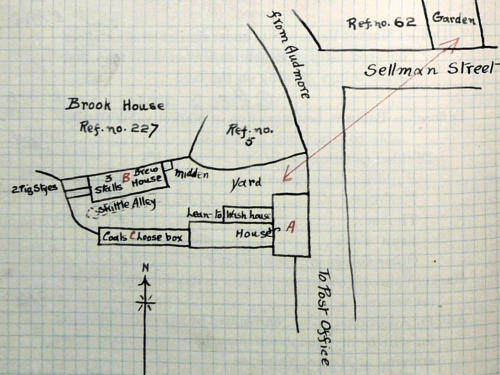 from Audmore
Ref. no. 62
Garden
Sellman Street
Brook House
Ref. no. 227
Ref. no.
5
2 Pig Styes
3
Stalls
B
Brew
House
midden
yard
Skittle Alley
Lean-to
Wash house
House
A
Coals
C
Loose box
N
To Post Office